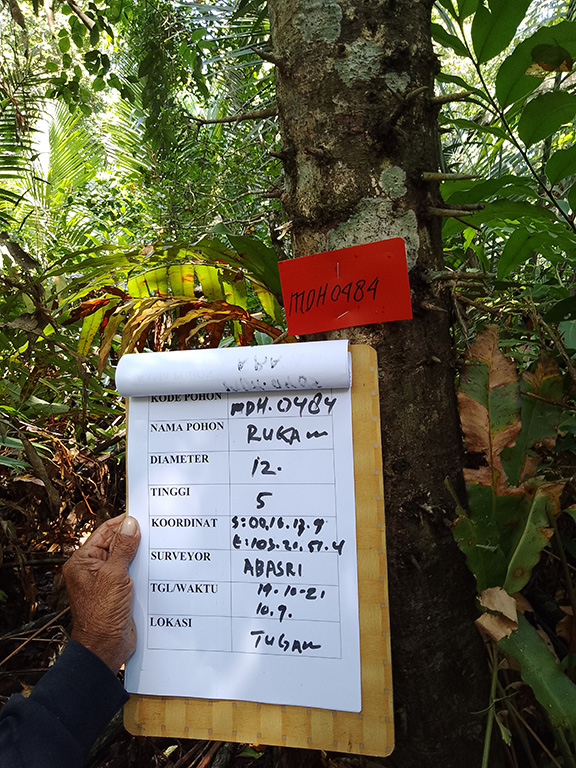 MDH0484
KODE POHON MDH.0484
NAMA POHON RUKAM
DIAMETER 12.
TINGGI 5
KOORDINAT S:00,16.17.9
E:103.21.57.4
SURVEYOR ABASRI
TGL/WAKTU 19-10-21
10.9.
LOKASI TUGAM